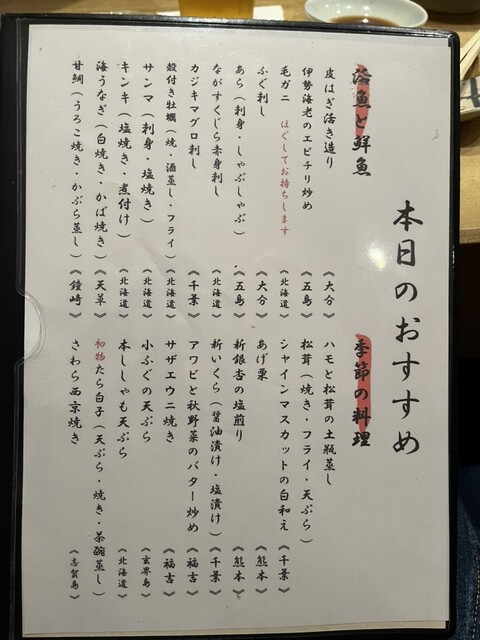 本日のおすすめ
活魚と鮮魚
皮はぎ活き造り《大分》
伊勢海老のエビチリ炒め《五島》
毛ガニ ほぐしてお持ちします《北海道》
ふぐ刺し《大分》
あら(刺身・しゃぶしゃぶ)《五島》
ながすくじら赤身刺し
カジキマグロ刺し《千葉》
殻付き牡蠣(焼・酒蒸し・フライ)《北海道》
サンマ(刺身・塩焼き)《北海道》
キンキ(塩焼き・煮付け)《北海道》
海うなぎ(白焼き・かば焼き)《天草》
甘鯛(うろこ焼き・かぶら蒸し)《鐘崎》
季節の料理
ハモと松茸の土瓶蒸し
松茸(焼き・フライ・天ぷら)
シャインマスカットの白和え《千葉》
あげ栗《熊本》
新銀杏の塩煎り《熊本》
新いくら(醤油漬け・塩漬け)《千葉》
アワビと秋野菜のバター炒め《福吉》
サザエウニ焼き《福吉》
小ふぐの天ぷら《玄界島》
本ししゃも天ぷら《北海道》
初物たら白子(天ぷら・焼き・茶碗蒸し)
さわら西京焼き《志賀島》